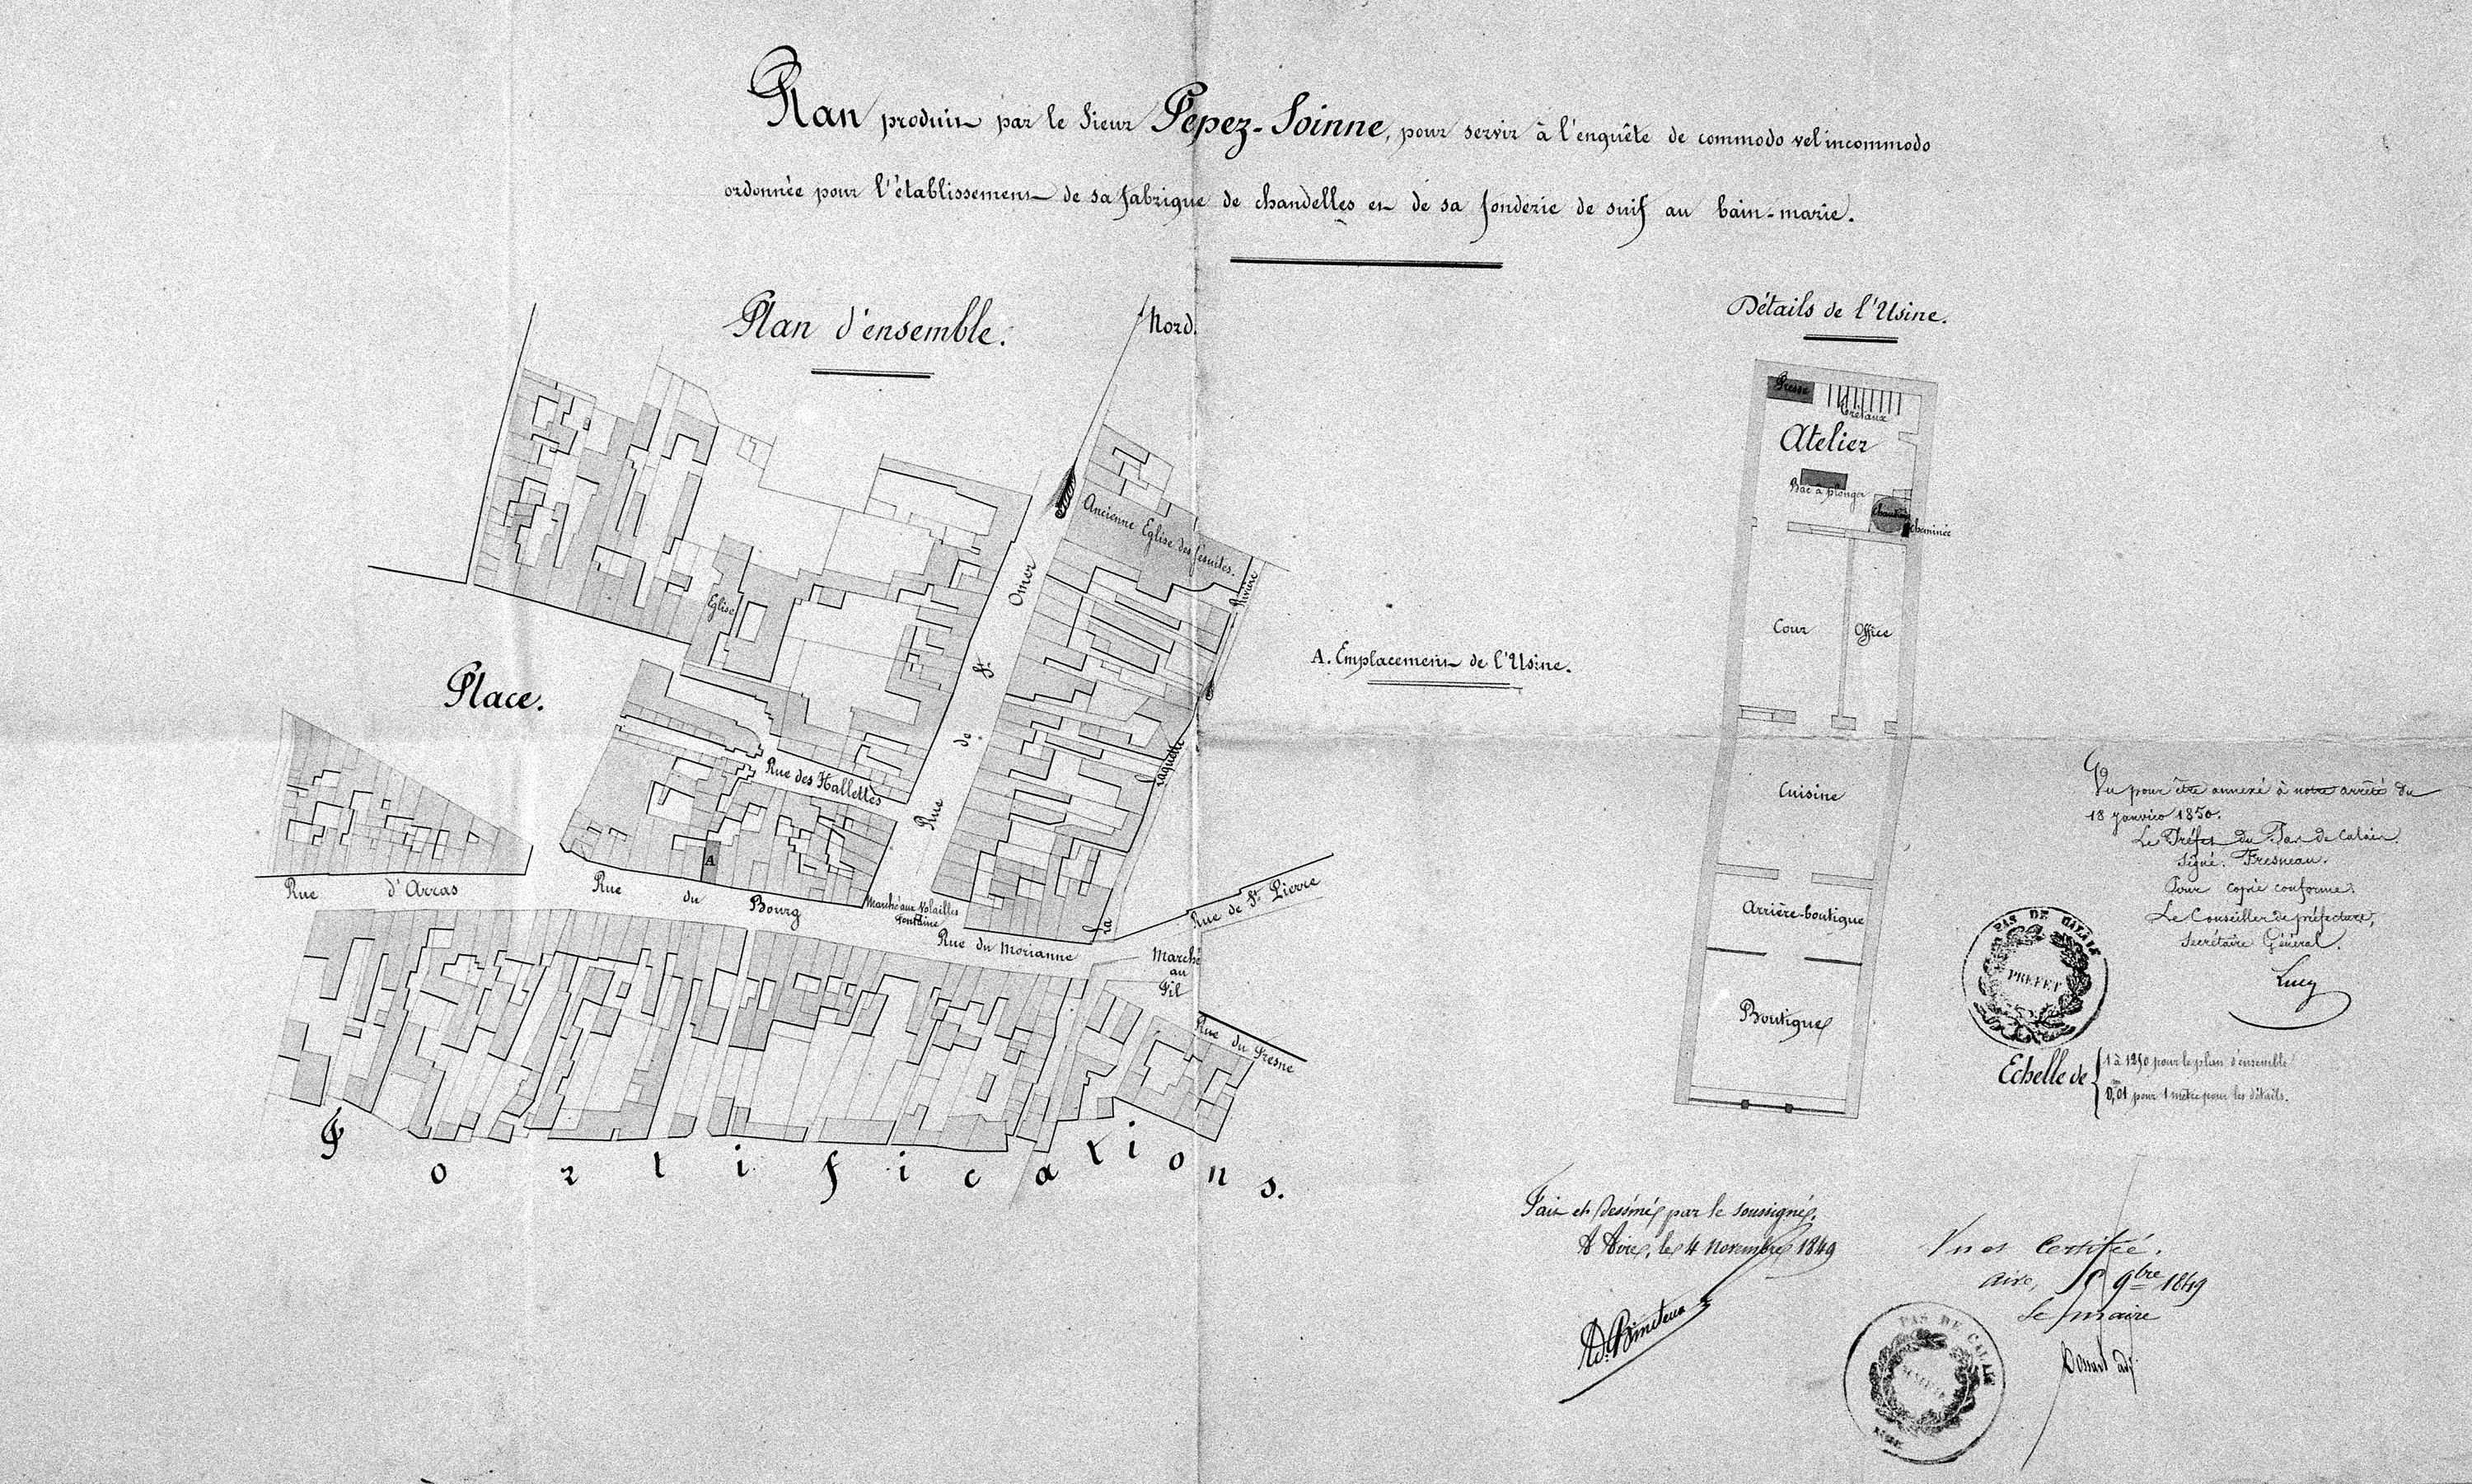 Plan produit par le Sieur Pepez-Soinne, pour servir à l'enquête de commodo vel incommodo
ordonnée pour l'établissement de sa fabrique de chandelles et de sa fonderie de suif au bain-marie.
Plan d'ensemble.
Nord.
Ancienne Eglise des Jesuites.
Rivière
Eglise
Rue de St. Omer
Place.
Rue des Hallettes
Laquette
La
A
Rue d'Arras
Rue du Bourg
Marché aux Volailles
Fontaine
Rue du Morianne
Rue de St. Pierre
Marché
au
Fil
Rue du Fresne
Fortifications.
A. Emplacement de l'Usine.
Détails de l'Usine.
Presse
Trétaux
Atelier
Bac à plonger
Chaudière
Cheminée
Cour
Office
Cuisine
Arrière-boutique
Boutique
Vu pour être annexé à notre arrêté du
18 janvier 1850.
Le Préfet du Pas de Calais.
Signé. Fresneau.
Pour copie conforme.
Le Conseiller de préfecture,
Secrétaire Général.
Lucy
PAS DE CALAIS
PREFET
Echelle de
1 à 1250 pour le plan d'ensemble
0,01 pour 1 mètre pour les détails.
Fait et dessiné par le soussigné.
A Aire, le 4 novembre 1849
Vu et Certifié.
Aire, 9bre 1849
Le maire
PAS DE CALAIS
MAIRIE